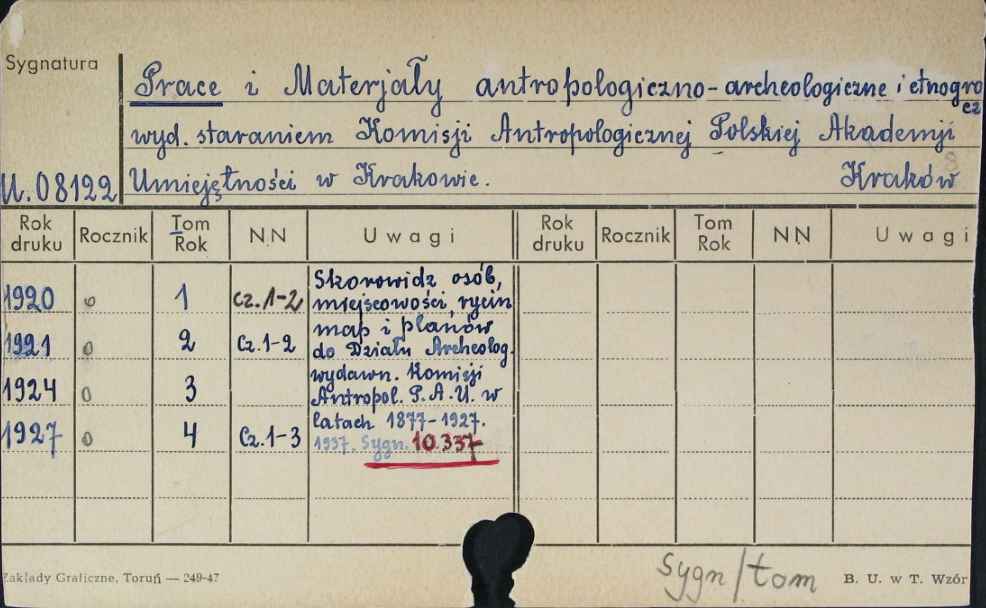 Sygnatura
Prace i Materjały antropologiczno-archeologiczne i etnogra
cz
wyd. staraniem Komisji Antropologicznej Polskiej Akademji
U.08122 Umiejętności w Krakowie. Kraków
Rok druku Rocznik Tom Rok NN Uwagi Rok druku Rocznik Tom Rok NN Uwagi
Skorowidz osób,
1920 o 1 cz.1-2 miejscowości, rycin
map i planów
1921 o 2 Cz.1-2 do Działu Archeolog.
wydawn. Komisji
1924 o 3 Antropol. P.A.U. w
latach 1877-1927.
1927 o 4 Cz.1-3 1937. Sygn. 10.337
sygn/tom
Zakłady Graficzne, Toruń — 249-47 B. U. w T. Wzór